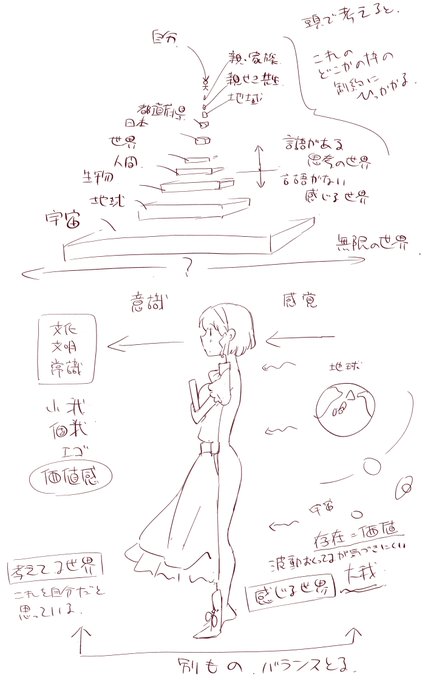 頭で考えると、
これの
どこかの枠の
制約に
ひっかかる。
自分
親・家族
親せき 先生
地域
都道府県
日本
世界
人間
生物
地球
宇宙
言語がある
思考の世界
言語がない
感じる世界
無限の世界
?
意識
感覚
文化
文明
常識
小我
個我
エゴ
価値感
地球
宇宙
存在=価値
波動おくってるが気づきにくい
大我
感じる世界
考えてる世界
これを自分だと
思っている。
別もの バランスとる。